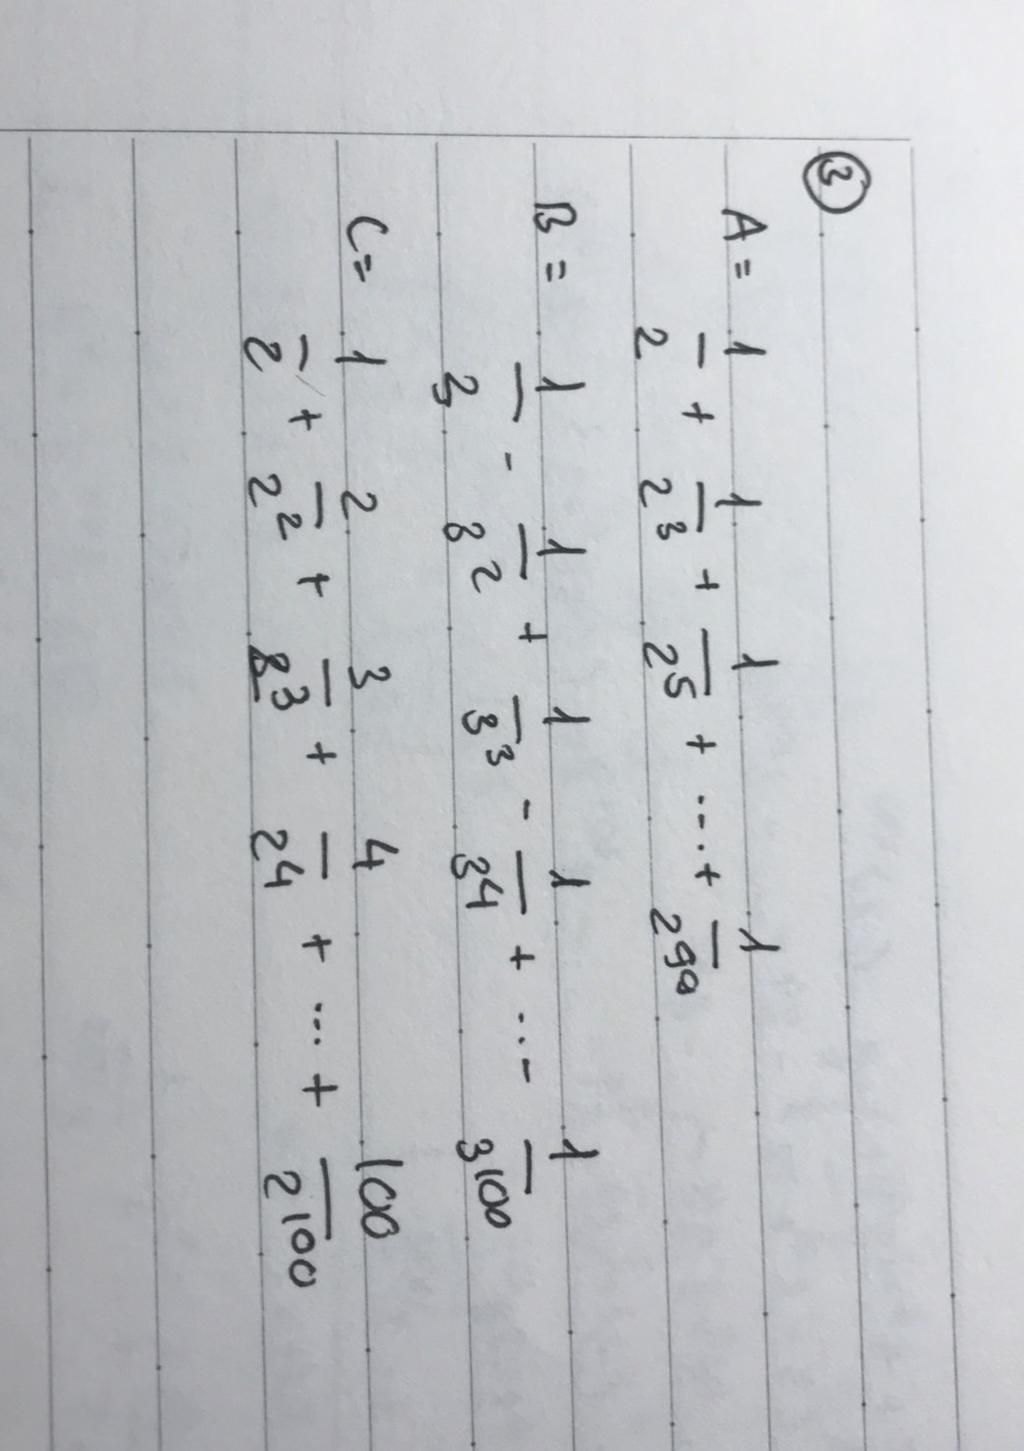 ③
A = 1/2 + 1/2³ + 1/2⁵ + ... + 1/2⁹⁹
B = 1/3 - 1/3² + 1/3³ - 1/3⁴ + ... - 1/3¹⁰⁰
C = 1/2 + 2/2² + 3/2³ + 4/2⁴ + ... + 100/2¹⁰⁰